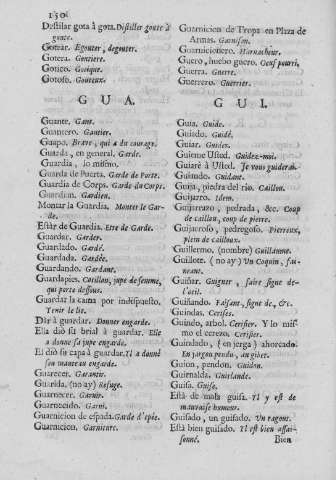 Destilar gota à gota. Distiller goute à
goute.
Gotear. Egouter, degouter.
Gotera. Goutiere.
Gotico. Gotique.
Gotoso. Gouteux.
GUA.
Guante. Gant.
Guantero. Gantier.
Guapo. Brave, qui a du courage.
Guarda, en general. Garde.
Guardia, lo mismo.
Guarda de Puerta. Garde de Porte.
Guardia de Corps. Garde du Corps.
Guardian. Gardien.
Montar la Guardia. Monter le Gar-
de.
Estàr de Guardia. Etre de Garde.
Guardar. Garder.
Guardado. Gardé.
Guardada. Gardée.
Guardando. Gardant.
Guardapies. Cotillon, jupe de femme,
qui porte dessous.
Guardar la cama por indispuesto.
Tenir le lit.
Dàr à guardar. Donner engarde.
Ella diò su brial à guardar. Elle
a donne sa jupe engarde.
El diò su capa à guardar. Il a donné
son manteau en garde.
Guarecer. Garantir.
Guarida, (no ay) Refuge.
Guarnecer. Garnir.
Guarnecido. Garni.
Guarnicion de espada. Garde d'epée.
Guarnicion. Garniture.
Guarnicion de Tropa en Plaza de
Armas. Garnison.
Guarnicionero. Harnacheur.
Guero, huebo guero. Oeuf pourri.
Guerra. Guerre.
Guerrero. Guerrier.
GUI.
Guia. Guide.
Guiado. Guidé.
Guiar. Guider.
Guieme Usted. Guidez-moi.
Guiarè à Usted. Je vous guiderai.
Guiando. Guidant.
Guija, piedra del rio. Caillou.
Guijarro. Idem.
Guijarrazo, pedrada, &c. Coup
de caillou, coup de pierre.
Guijarroso, pedregoso. Pierreux,
plein de cailloux.
Guillermo, (nombre) Guillaume.
Guillote. (no ay) Un Coquin, fai-
neant.
Guiñar. Guigner, faire signe de-
l'oeil.
Guiñando. Faisant, signe de, &c.
Guindas. Cerises.
Guindo, arbol. Cerisier. Y lo mis-
mo el cerezo. Cerisier.
Guindado, (en jerga) ahorcado.
En jargon pendu, au gibet.
Guion, pendon. Guidon.
Guirnalda. Guirlande.
Guisa. Guise.
Està de mala guisa. Il y est de
mauvaise humeur.
Guisado, un guisado. Un ragout.
Està bien guisado. Il est bien assai-
sonné.
Bien